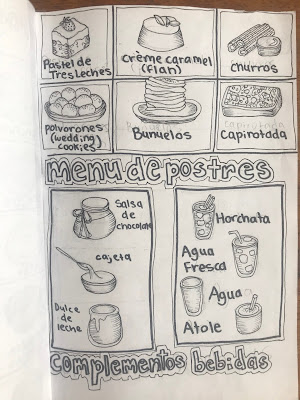 Pastel de
Tres Leches
Crème caramel
(flan)
churros
polvorones
(wedding)
cookies
Buñuelos
Capirotada
menu de postres
Salsa
de
chocolate
cajeta
Dulce
de
leche
Horchata
Agua
Fresca
Agua
Atole
complementos bebidas